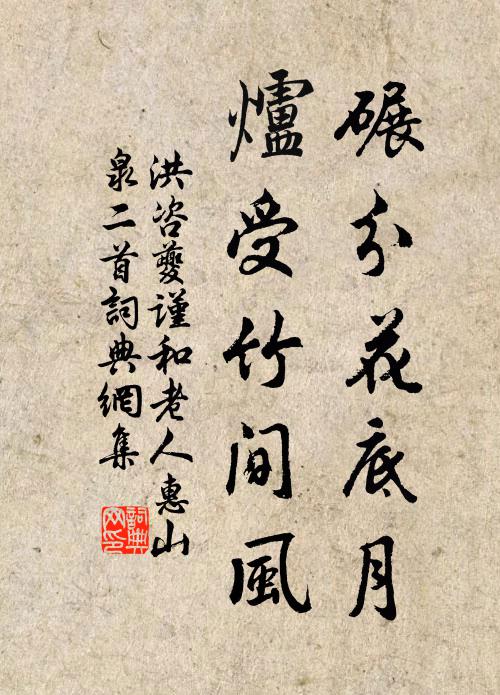 碾分花底月
爐受竹間風
洪咨夔謹和老人惠山
泉二首詞典網集
詞典
网印